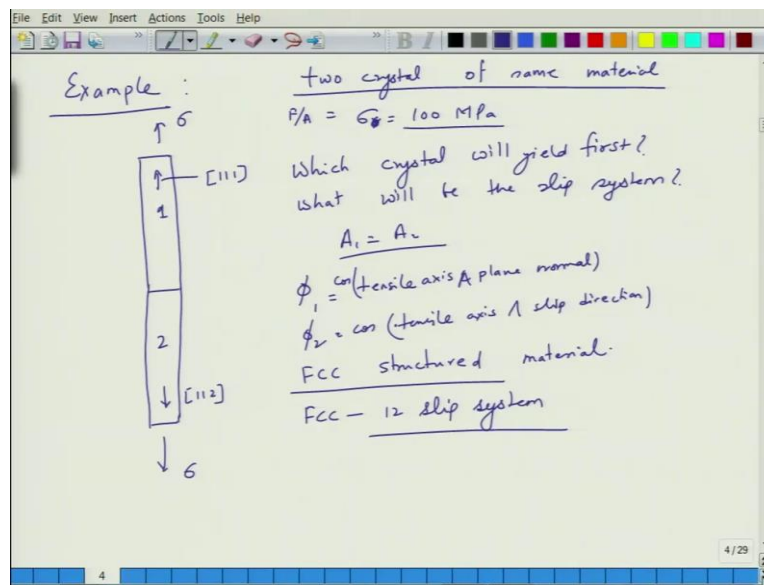 File Edit View Insert Actions Tools Help
Example :
two crystal of same material
P/A = σ = 100 MPa
σ
[111]
1
Which crystal will yield first?
What will be the slip system?
A₁ = A₂
ϕ₁ = cos(tensile axis ∧ plane normal)
ϕ₂ = cos (tensile axis ∧ slip direction)
2
FCC structured material.
[112]
FCC – 12 slip system
σ
4/29
4